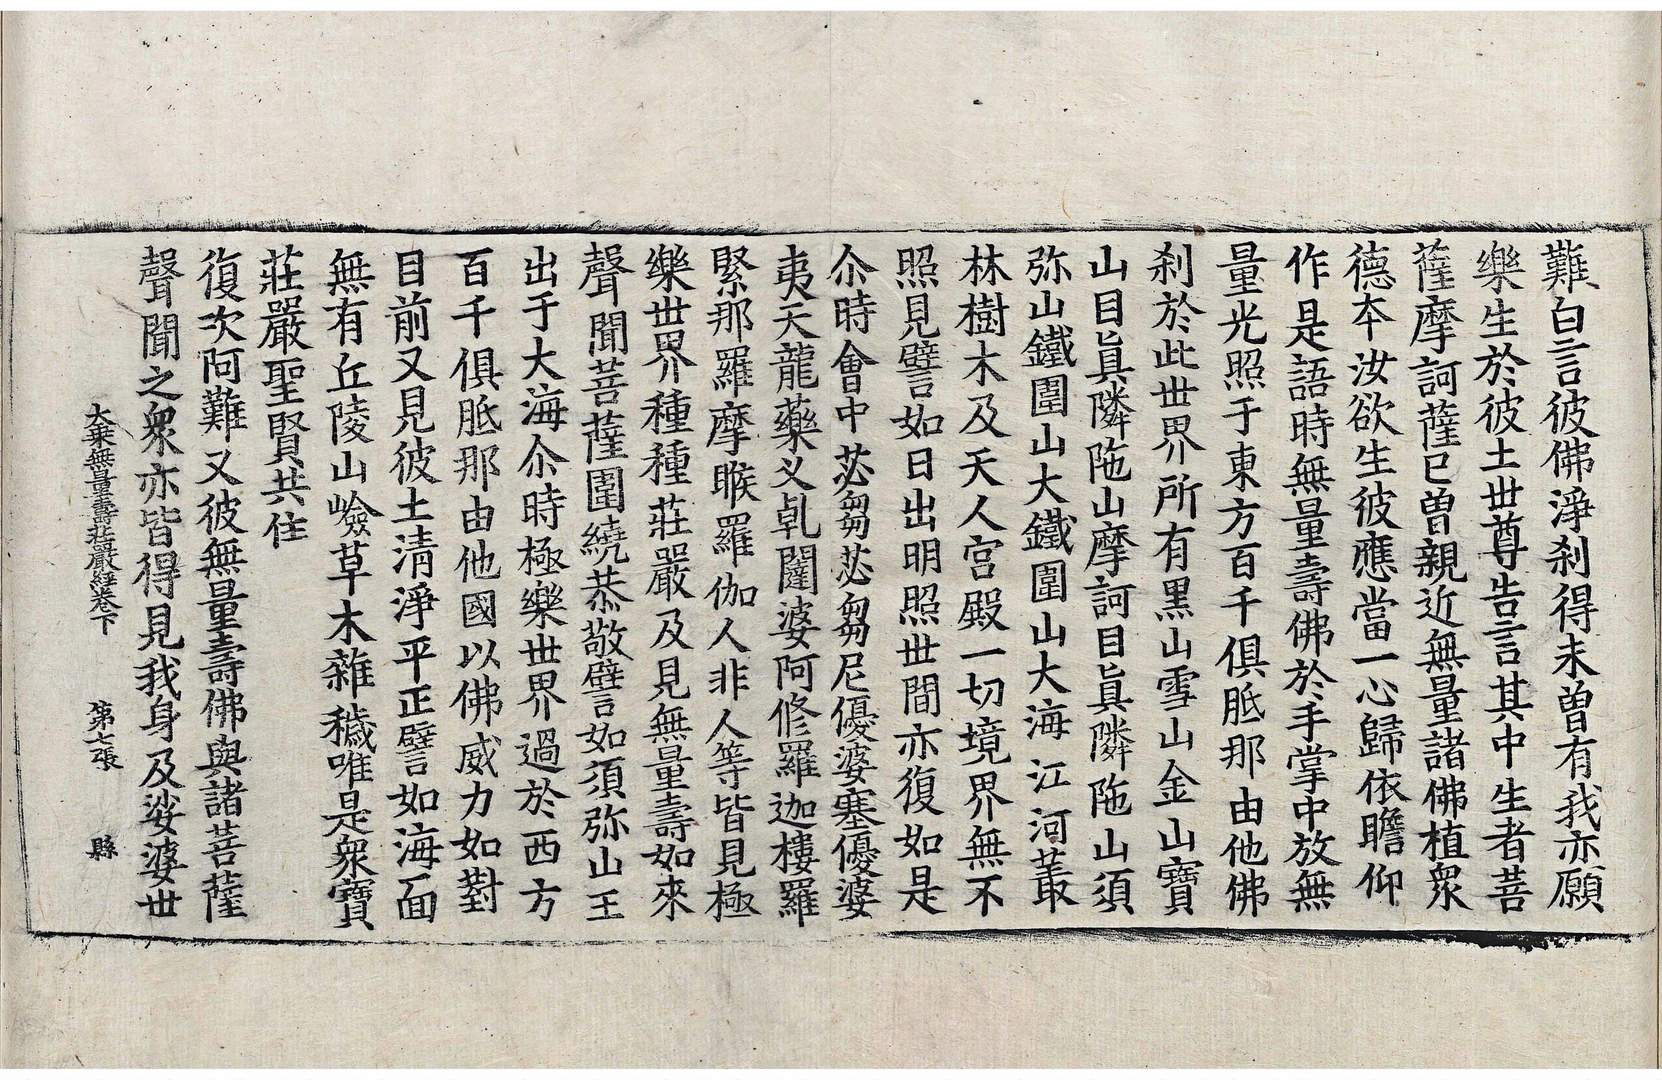 難白言彼佛淨刹得未曾有我亦願
樂生於彼土世尊告言其中生者菩
薩摩訶薩已曾親近無量諸佛植衆
德夲汝欲生彼應當一心歸依瞻仰
作是語時無量壽佛於手掌中放無
量光照于東方百千俱胝那由他佛
刹於此世界所有黑山雪山金山寶
山目眞隣陁山摩訶目眞隣陁山須
弥山鐵圍山大鐵圍山大海江河藂
林樹木及天人宮殿一切境界無不
照見譬如日出明照世間亦復如是
尒時會中苾芻苾芻尼優婆塞優婆
夷天龍藥义乹闥婆阿修羅迦樓羅
緊那羅摩睺羅伽人非人等皆見極
樂世界種種莊嚴及見無量壽如來
聲聞菩薩圍繞恭敬譬如須弥山王
出于大海尒時極樂世界過於西方
百千俱胝那由他國以佛威力如對
目前又見彼土清淨平正譬如海面
無有丘陵山嶮草木雜穢唯是衆寶
莊嚴聖賢共住
復次阿難又彼無量壽佛與諸菩薩
聲聞之衆亦皆得見我身及娑婆世
大乘無量壽莊嚴經卷下 第七張 縣